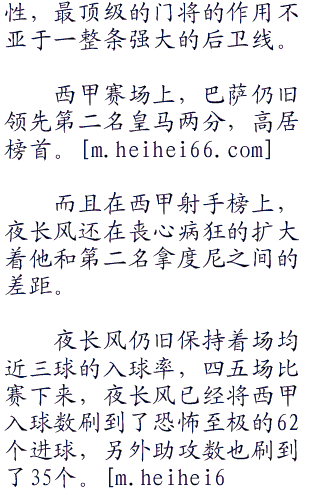 性，最顶级的门将的作用不
亚于一整条强大的后卫线。
西甲赛场上，巴萨仍旧
领先第二名皇马两分，高居
榜首。[m.heihei66.com]
而且在西甲射手榜上，
夜长风还在丧心病狂的扩大
着他和第二名拿度尼之间的
差距。
夜长风仍旧保持着场均
近三球的入球率，四五场比
赛下来，夜长风已经将西甲
入球数刷到了恐怖至极的62
个进球，另外助攻数也刷到
了35个。[m.heihei6